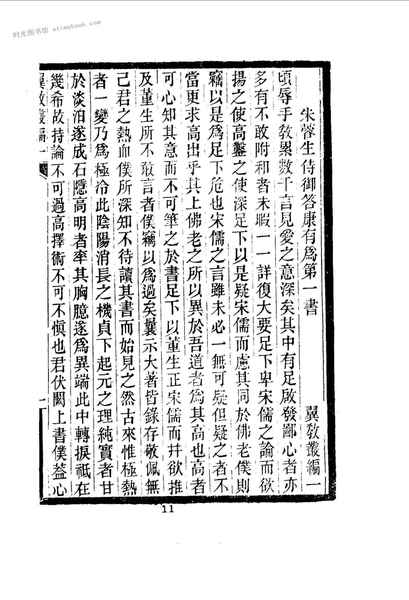 时光图书馆 etimebook.com
翼教叢編一
朱蓉生侍御答康有爲第一書
頃辱手敎累數千言見愛之意深矣其中有足啟發鄙心者亦
多有不敢附和者未暇一一詳復大要足下卑宋儒之論而欲
揚之使高鑿之使深足下以是疑宋儒而慮其同於佛老僕則
竊以是爲足下危也宋儒之言雖未必一一無可疑但疑之者不
當更求高出乎其上佛老之所以異於吾道者爲其高也高者
可心知其意而不可筆之於書足下以董生正宋儒而幷欲推
及董生所不敢言者僕竊以爲過矣曩示大著皆錄存敬佩無
己君之熱血僕所深知不待讀其書而始見之然古來惟極熱
者一變乃爲極冷此陰陽消長之機貞下起元之理純實者甘
於淡泊遂成石隱高明者率其胸臆遂爲異端此中轉捩祇在
幾希故持論不可過高擇術不可不愼也君伏闕上書僕葢心
翼教叢編一
一
11